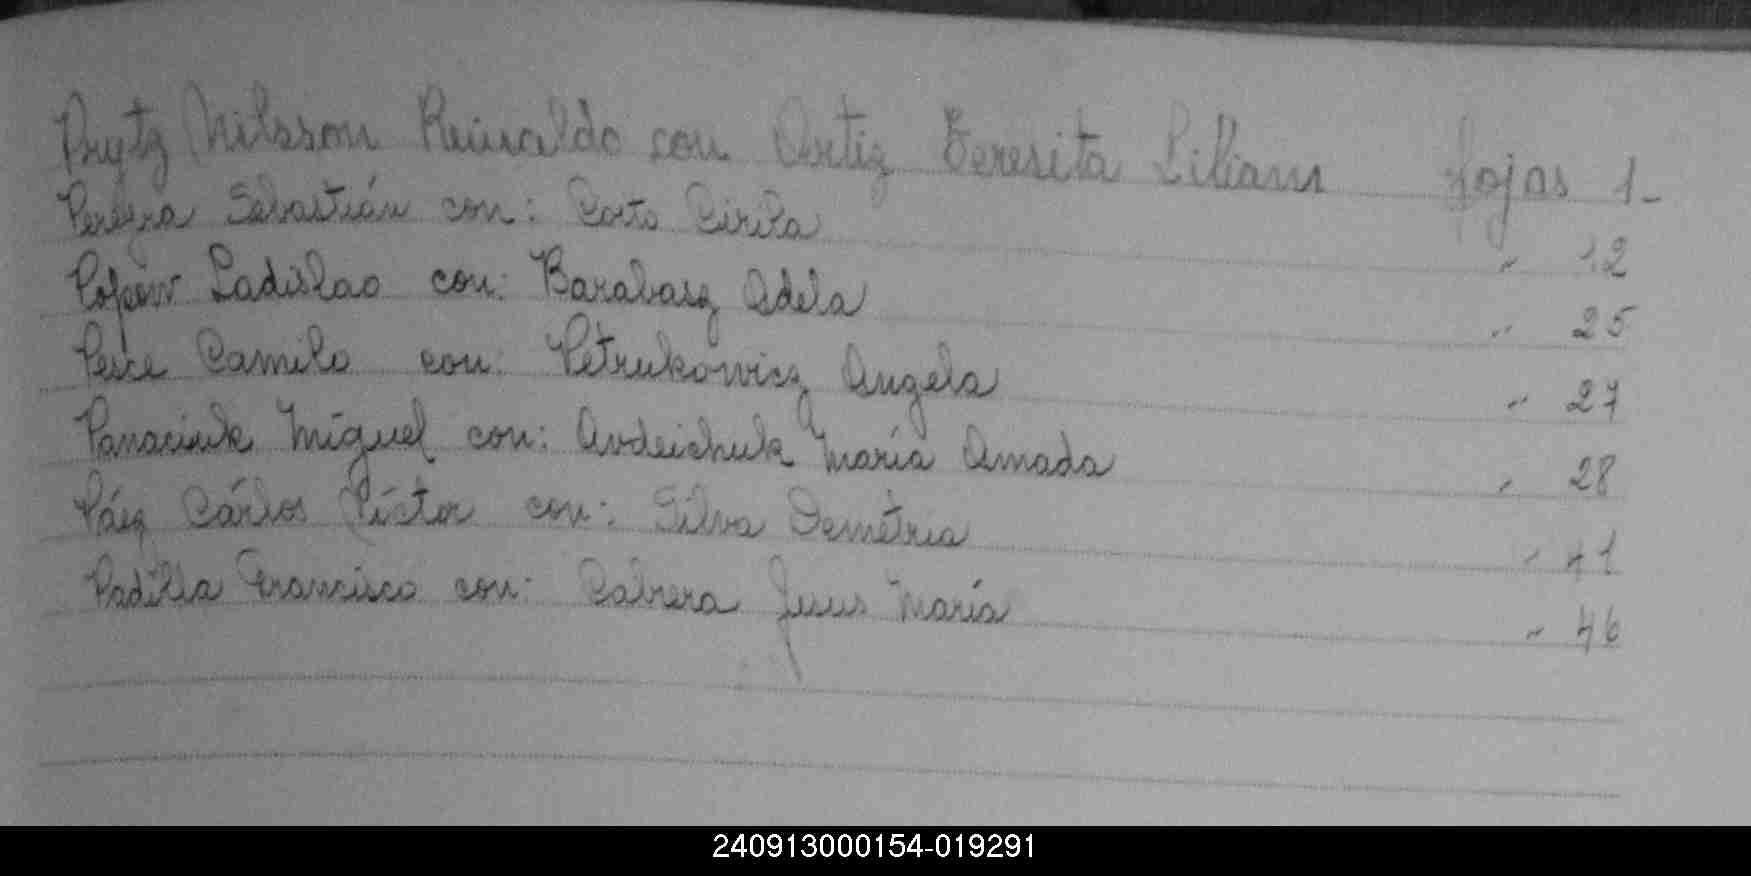 Prytz Nilsson Reinaldo con Ortiz Teresita Liliam fojas 1-
Pereyra Sebastián con: Coito Cirila " 12
Popow Ladislao con: Barabasz Adela " 25
Pesce Camilo con: Petrukowicz Angela " 27
Panaciuk Miguel con: Avdeichuk María Amada " 28
Páez Cárlos Víctor con: Silva Demetria " 41
Padilla Francisco con: Cabrera Jesus María " 46
240913000154-019291